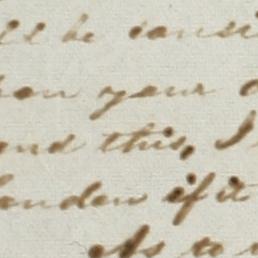 be consi
on your
and this, I
London if it
As to